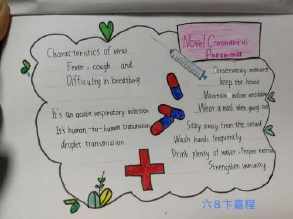 Novel Coronavirus
Pneumonia
Characteristics of virus
Fever, cough and
Difficulty in breathing
It's an acute respiratory infection
It's human-to-human transmission
droplet transmission
keep the house
Maintain indoor ventilation
Wear a mask when going out
Stay away from the crowd
Wash hands frequently
Drink plenty of water
Strengthen immunity
六8卞嘉程